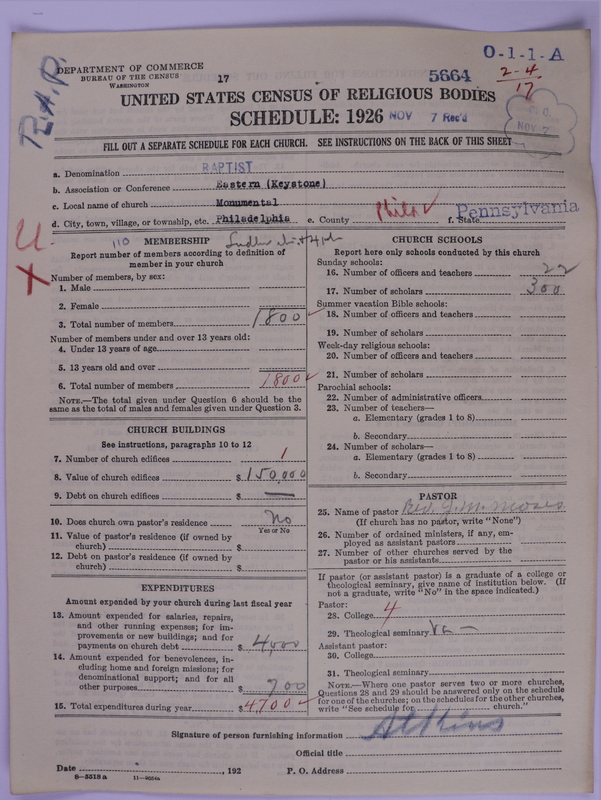 O-1-1-A
DEPARTMENT OF COMMERCE
BUREAU OF THE CENSUS
WASHINGTON
17
5664
2-4
17
UNITED STATES CENSUS OF RELIGIOUS BODIES
SCHEDULE: 1926
NOV 7 Rec'd
NOV 7
FILL OUT A SEPARATE SCHEDULE FOR EACH CHURCH. SEE INSTRUCTIONS ON THE BACK OF THIS SHEET
a. Denomination BAPTIST
b. Association or Conference Eastern (Keystone)
c. Local name of church Monumental
d. City, town, village, or township, etc. Philadelphia e. County Phila f. State Pennsylvania
U
X
110
MEMBERSHIP
Report number of members according to definition of
member in your church
Number of members, by sex:
1. Male
2. Female
3. Total number of members 1800
Number of members under and over 13 years old:
4. Under 13 years of age
5. 13 years old and over
6. Total number of members 1800
NOTE.—The total given under Question 6 should be
same as the total of males and females given under Question 3.
CHURCH BUILDINGS
See instructions, paragraphs 10 to 12
7. Number of church edifices 1
8. Value of church edifices $150,000
9. Debt on church edifices $ —
10. Does church own pastor's residence No
Yes or No
11. Value of pastor's residence (if owned by
church) $
12. Debt on pastor's residence (if owned by
church) $
EXPENDITURES
Amount expended by your church during last fiscal year
13. Amount expended for salaries, repairs,
and other running expenses; for im-
provements or new buildings; and for
payments on church debt $ 4,000
14. Amount expended for benevolences, in-
cluding home and foreign missions; for
denominational support; and for all
other purposes $ 700
15. Total expenditures during year $4700
CHURCH SCHOOLS
Report here only schools conducted by this church
Sunday schools:
16. Number of officers and teachers 22
17. Number of scholars 300
Summer vacation Bible schools:
18. Number of officers and teachers
19. Number of scholars
Week-day religious schools:
20. Number of officers and teachers
21. Number of scholars
Parochial schools:
22. Number of administrative officers
23. Number of teachers—
a. Elementary (grades 1 to 8)
b. Secondary
24. Number of scholars—
a. Elementary (grades 1 to 8)
b. Secondary
PASTOR
25. Name of pastor Rev. D. M. Moses
(If church has no pastor, write "None")
26. Number of ordained ministers, if any, em-
ployed as assistant pastors
27. Number of other churches served by the
pastor or his assistants
If pastor (or assistant pastor) is a graduate of a college or
theological seminary, give name of institution below. (If
not a graduate, write "No" in the space indicated.)
Pastor:
28. College 4
29. Theological seminary Va —
Assistant pastor:
30. College
31. Theological seminary
NOTE.—Where one pastor serves two or more churches,
Questions 28 and 29 should be answered only on the schedule
for one of the churches; on the schedules for the other churches,
write "See schedule for church."
Signature of person furnishing information
Official title
Date , 192
P. O. Address
8-5518 a
11-9054a